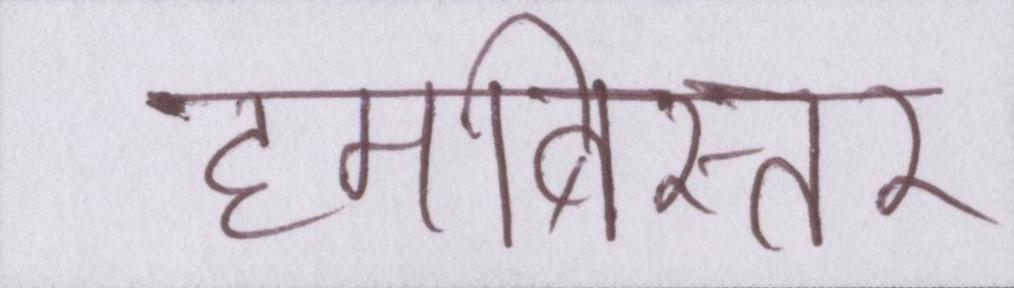 हमबिस्तर